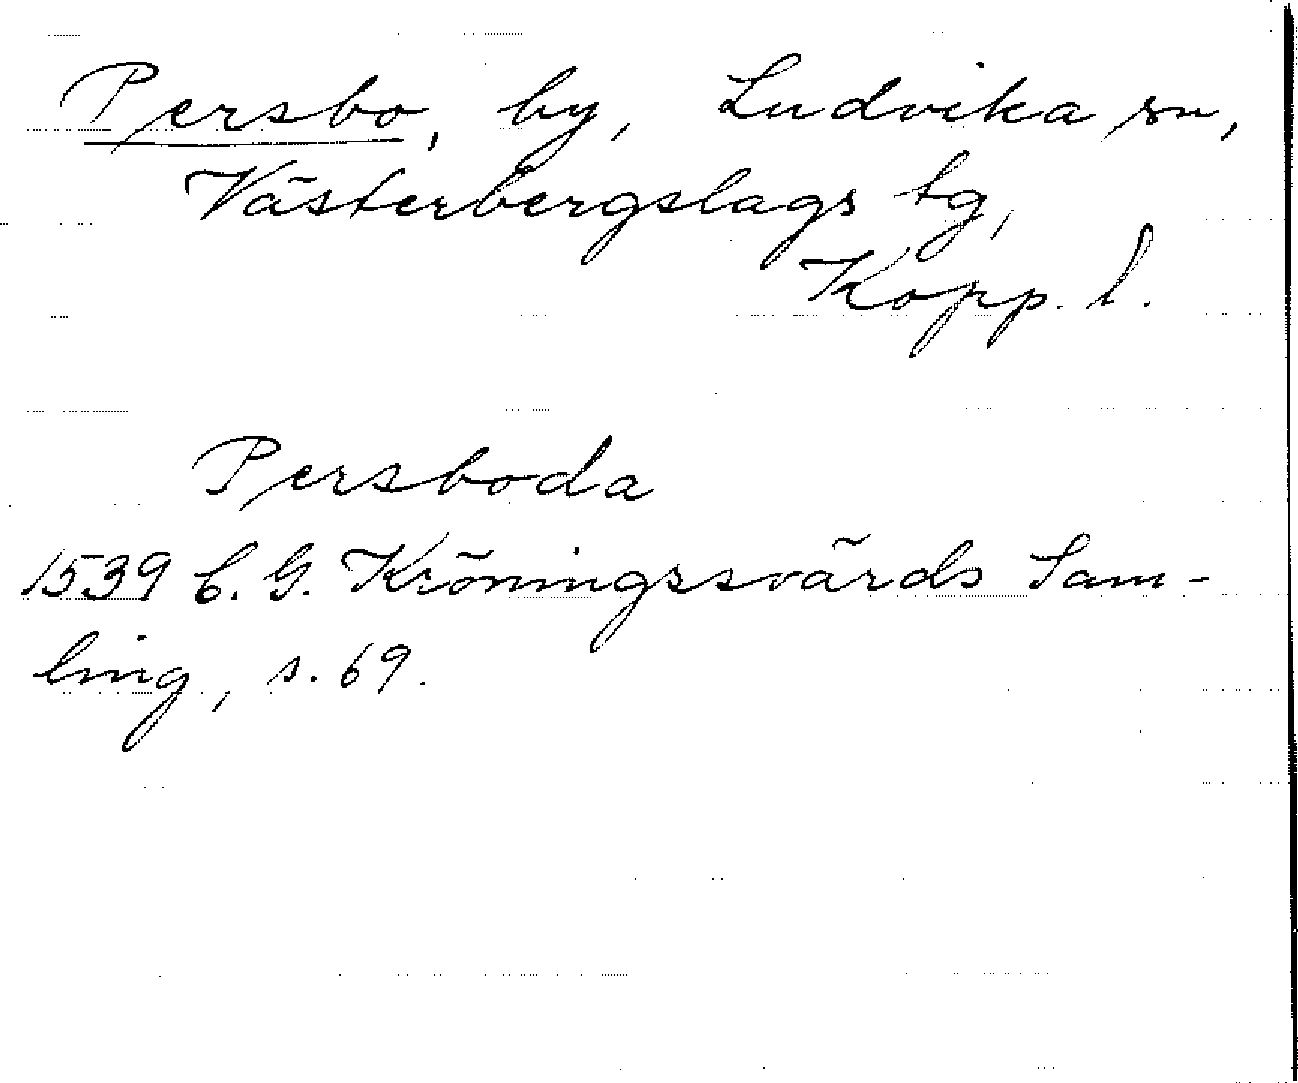 Persbo, by, Ludvika sn,
Västerbergslags tg,
Kopp. l.
Persboda
1539 C. G. Kröningssvärds Sam-
ling, s. 69.